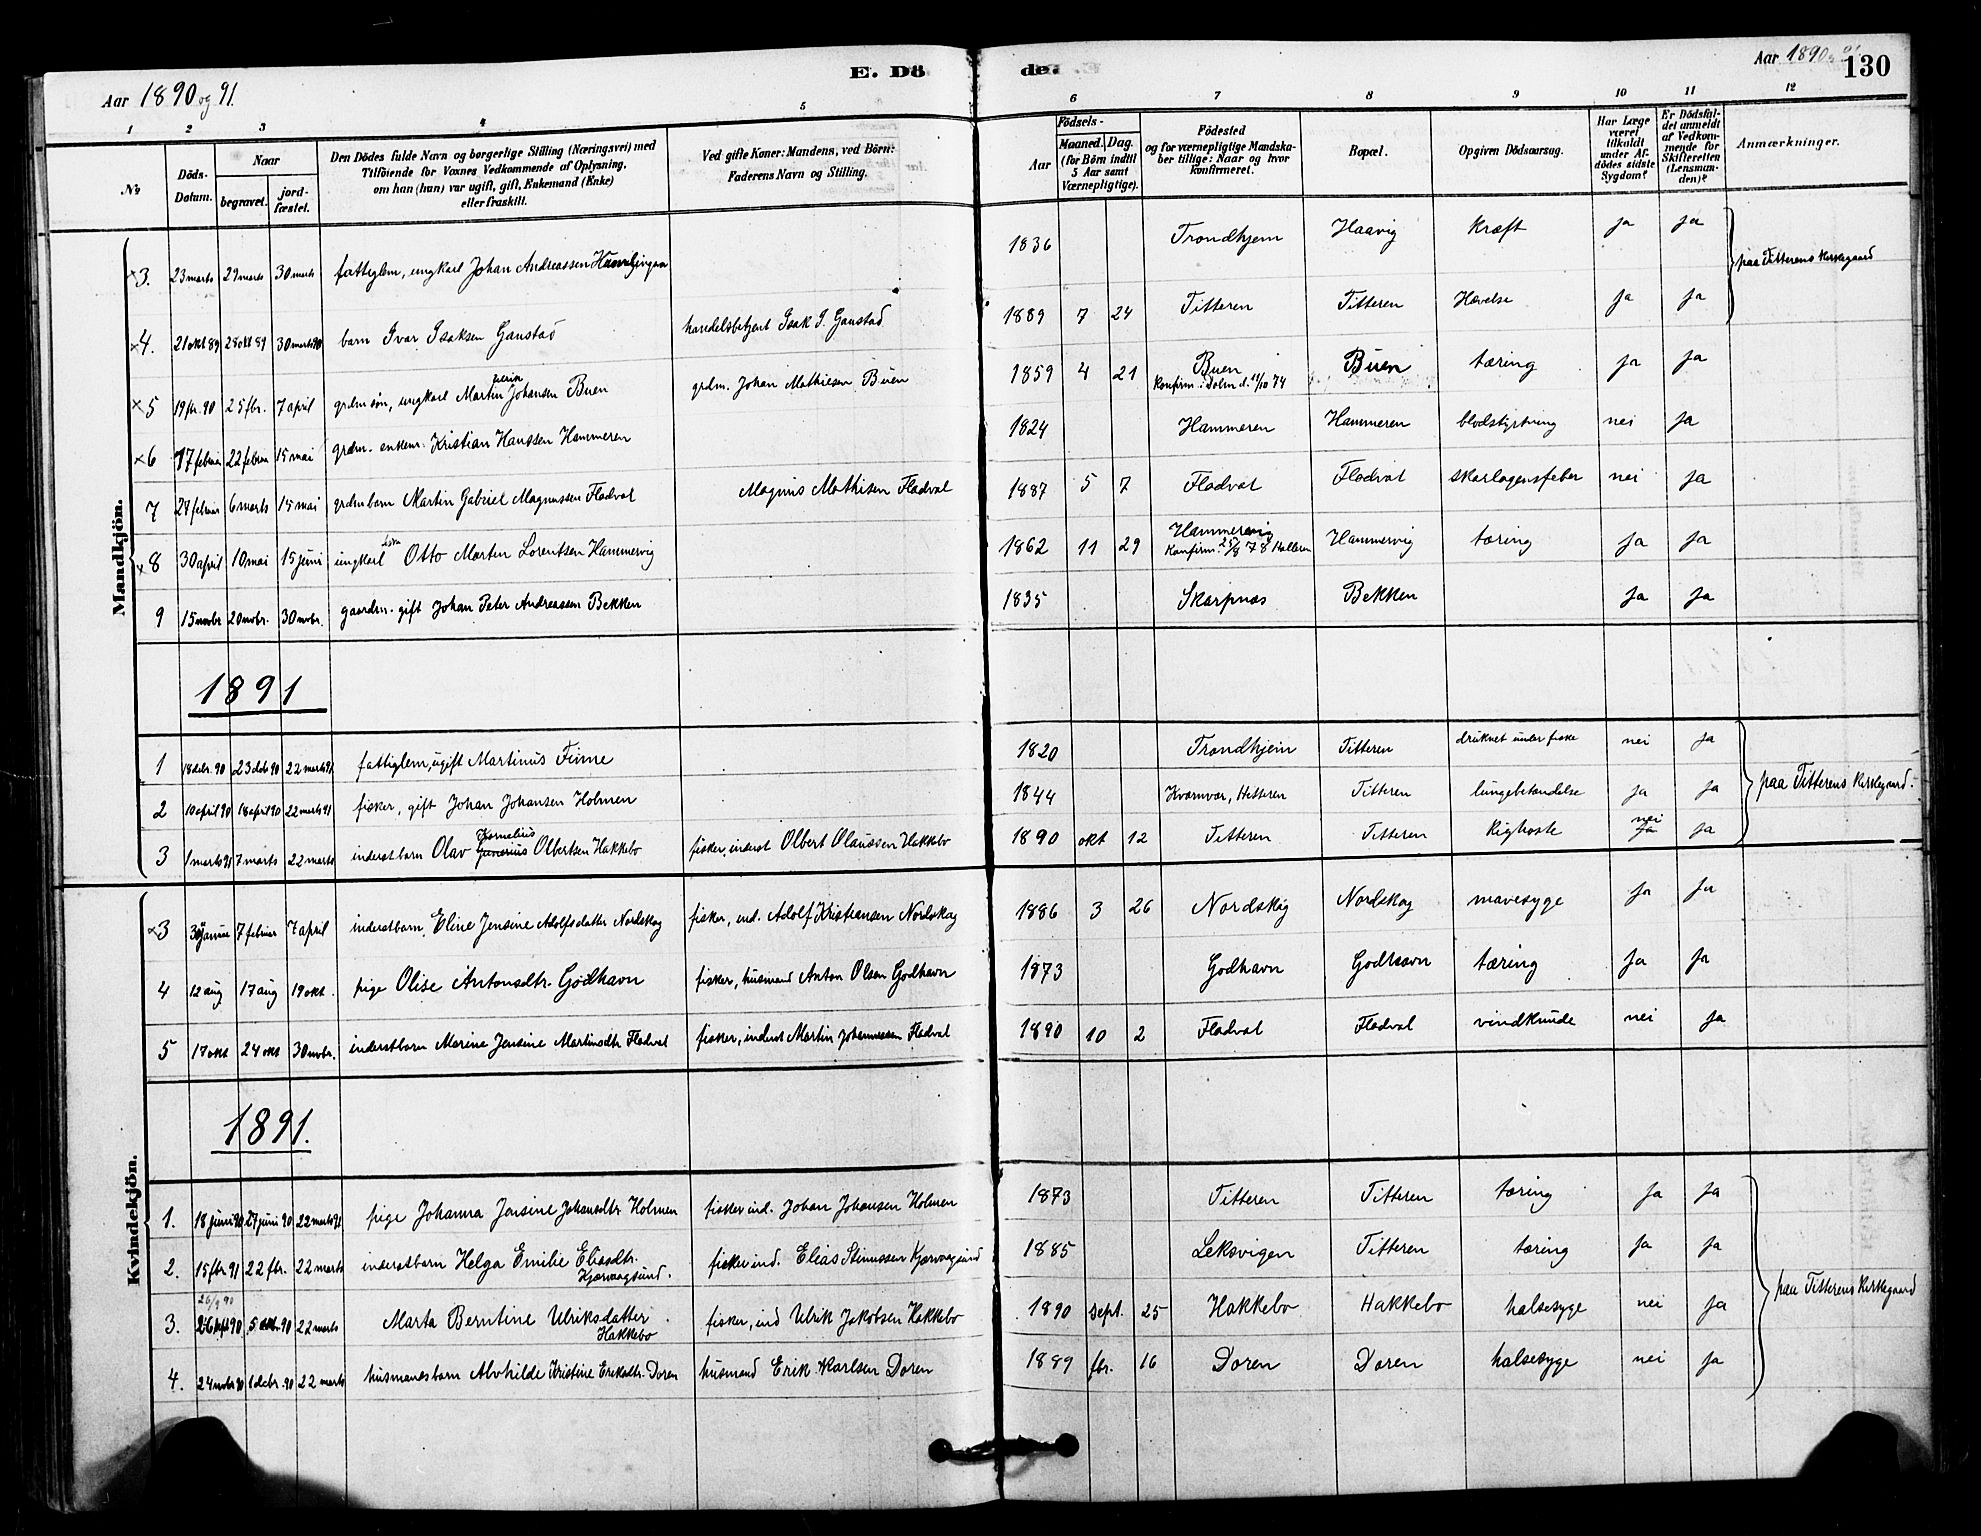 Aar 1890 og 91.
E. Dö
de.
Aar 1890
130
1 2 3 4 5 6 7 8 9 10 11 12
No
Döds-Datum.
Naar
begravet.
jord-fæstet.
Den Dödes fulde Navn og borgerlige Stilling (Næringsvei) med
Tilföiende for Voxnes Vedkommende af Oplysning,
om han (hun) var ugift, gift, Enkemand (Enke)
eller fraskilt.
Ved gifte Koner: Mandens, ved Börn:
Faderens Navn og Stilling.
Födsels-
Aar
Maaned. Dag.
(for Börn indtil
5 Aar samt
Værnepligtige).
Födested
og for værnepligtige Mandska-
ber tillige: Naar og hvor
konfirmeret.
Bopæl.
Opgiven Dödsaarsag.
Har Læge
været
tilkaldt
under Af-
dödes sidste
Sygdom?
Er Dödsfal-
det anmeldt
af Vedkom-
mende for
Skifteretten
(Lensman-
den)?
Anmærkninger.
Mandkjön.
×3. 23 marts 29 marts 30 marts fattiglem, ungkarl Johan Andreassen 1836 Trondhjem Haavig Kræft ja ja
paa Titterens Kirkegaard
×4. 21 okt 89 28 okt 89 30 marts 90 barn Ivar Isaksen Gaustad handelsbetjent Isak I. Gaustad 1889 7 24 Titteren Titteren Hævelse ja ja
×5 19 fbr. 90 25 fbr. 7 april grdm søn, ungkarl Martin Johansen Buen grdm. Johan Mathiesen Buen 1859 4 21 Buen Konfirm. i Dolm d. 11/10 74 Buen tæring ja ja
×6 17 februar 22 februar 15 mai grdm. enkem. Kristian Hanssen Hammeren 1824 Hammeren Hammeren blodstyrtning nei ja
7 27 februar 6 marts 15 mai grdm barn Martin Gabriel Magnussen Fladval Magnus Mathisen Fladval 1887 5 7 Fladval Fladval skarlagensfeber nei ja
×8 30 april 10 mai 15 juni ungkarl Otto Martin Lorentsen Hammervig 1862 11 29 Hammervig Konfirm. 25/8 78 Halleren Hammervig tæring ja ja
9 15 novbr 20 novbr. 30 novbr. gaardm. gift Johan Peter Andreassen Bekken 1835 Skarpnes Bekken ja ja
1891
1 18 debr. 90 23 debr 90 22 marts 91 fattiglem, ugift Martinus Finne 1820 Trondhjem Titteren druknet under fiske nei ja
2 10 april 90 18 april 90 22 marts 91 fisker, gift Johan Johansen Holmen 1844 Kvernvær, Hitteren Titteren lungebetændelse ja ja
paa Titterens Kirkegaard.
3 1 marts 91 7 marts 22 marts inderstbarn Olav Kornelius Olbertsen Hakkebo fisker, inderst Olbert Olaussen Hakkebo 1890 okt 12 Titteren Titteren Kighoste nei ja ja
Kvindekjön.
×3 30 januar 7 februar 7 april inderstbarn Eline Jensine Adolfsdatter Nordskag fisker, ind. Adolf Kristiansen Nordskag 1886 3 26 Nordskag Nordskag mavesyge ja ja
4 12 aug 17 aug 19 okt. pige Olise Antonsdtr. Godhavn fisker, husmand Anton Olsen Godhavn 1873 Godhavn Godhavn tæring ja ja
5 17 okt 24 okt 30 novbr. inderstbarn Marine Jensine Martinsdtr Fladval fisker, inderst Martin Johannessen Fladval 1890 10 2 Fladval Fladval vindknude nei ja
1891.
1. 18 juni 90 27 juni 90 22 marts 91 pige Johanna Jensine Johansdtr Holmen fisker ind. Johan Johansen Holmen 1873 Titteren Titteren tæring ja ja
2. 15 fbr 91 22 fbr. 22 marts inderstbarn Helga Emilie Eliasdtr. Kjørvaagsund. fisker ind. Elias Simussen Kjørvaagsund 1885 Leksvigen Titteren tæring ja ja
paa Titterens Kirkegaard
26/9 90
3. 26 sept 90 5 okt. 90 22 marts Marta Berntine Ulriksdatter Hakkebo fisker, ind Ulrik Jakobsen Hakkebo 1890 sept. 25 Hakkebo Hakkebo halsesyge nei ja
4. 24 novbr 90 1 debr. 90 22 marts husmandsbarn Alvhilde Kristine Eriksdtr. Doren husmand Erik Karlsen Doren 1889 fbr. 16 Doren Doren halsesyge nei ja